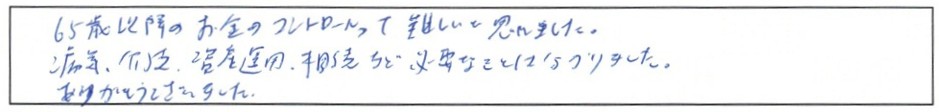 65歳以降のお金のコントロールって難しいと思いました。
病気、介護、資産運用、相続など必要なことは分かりました。
ありがとうございました。